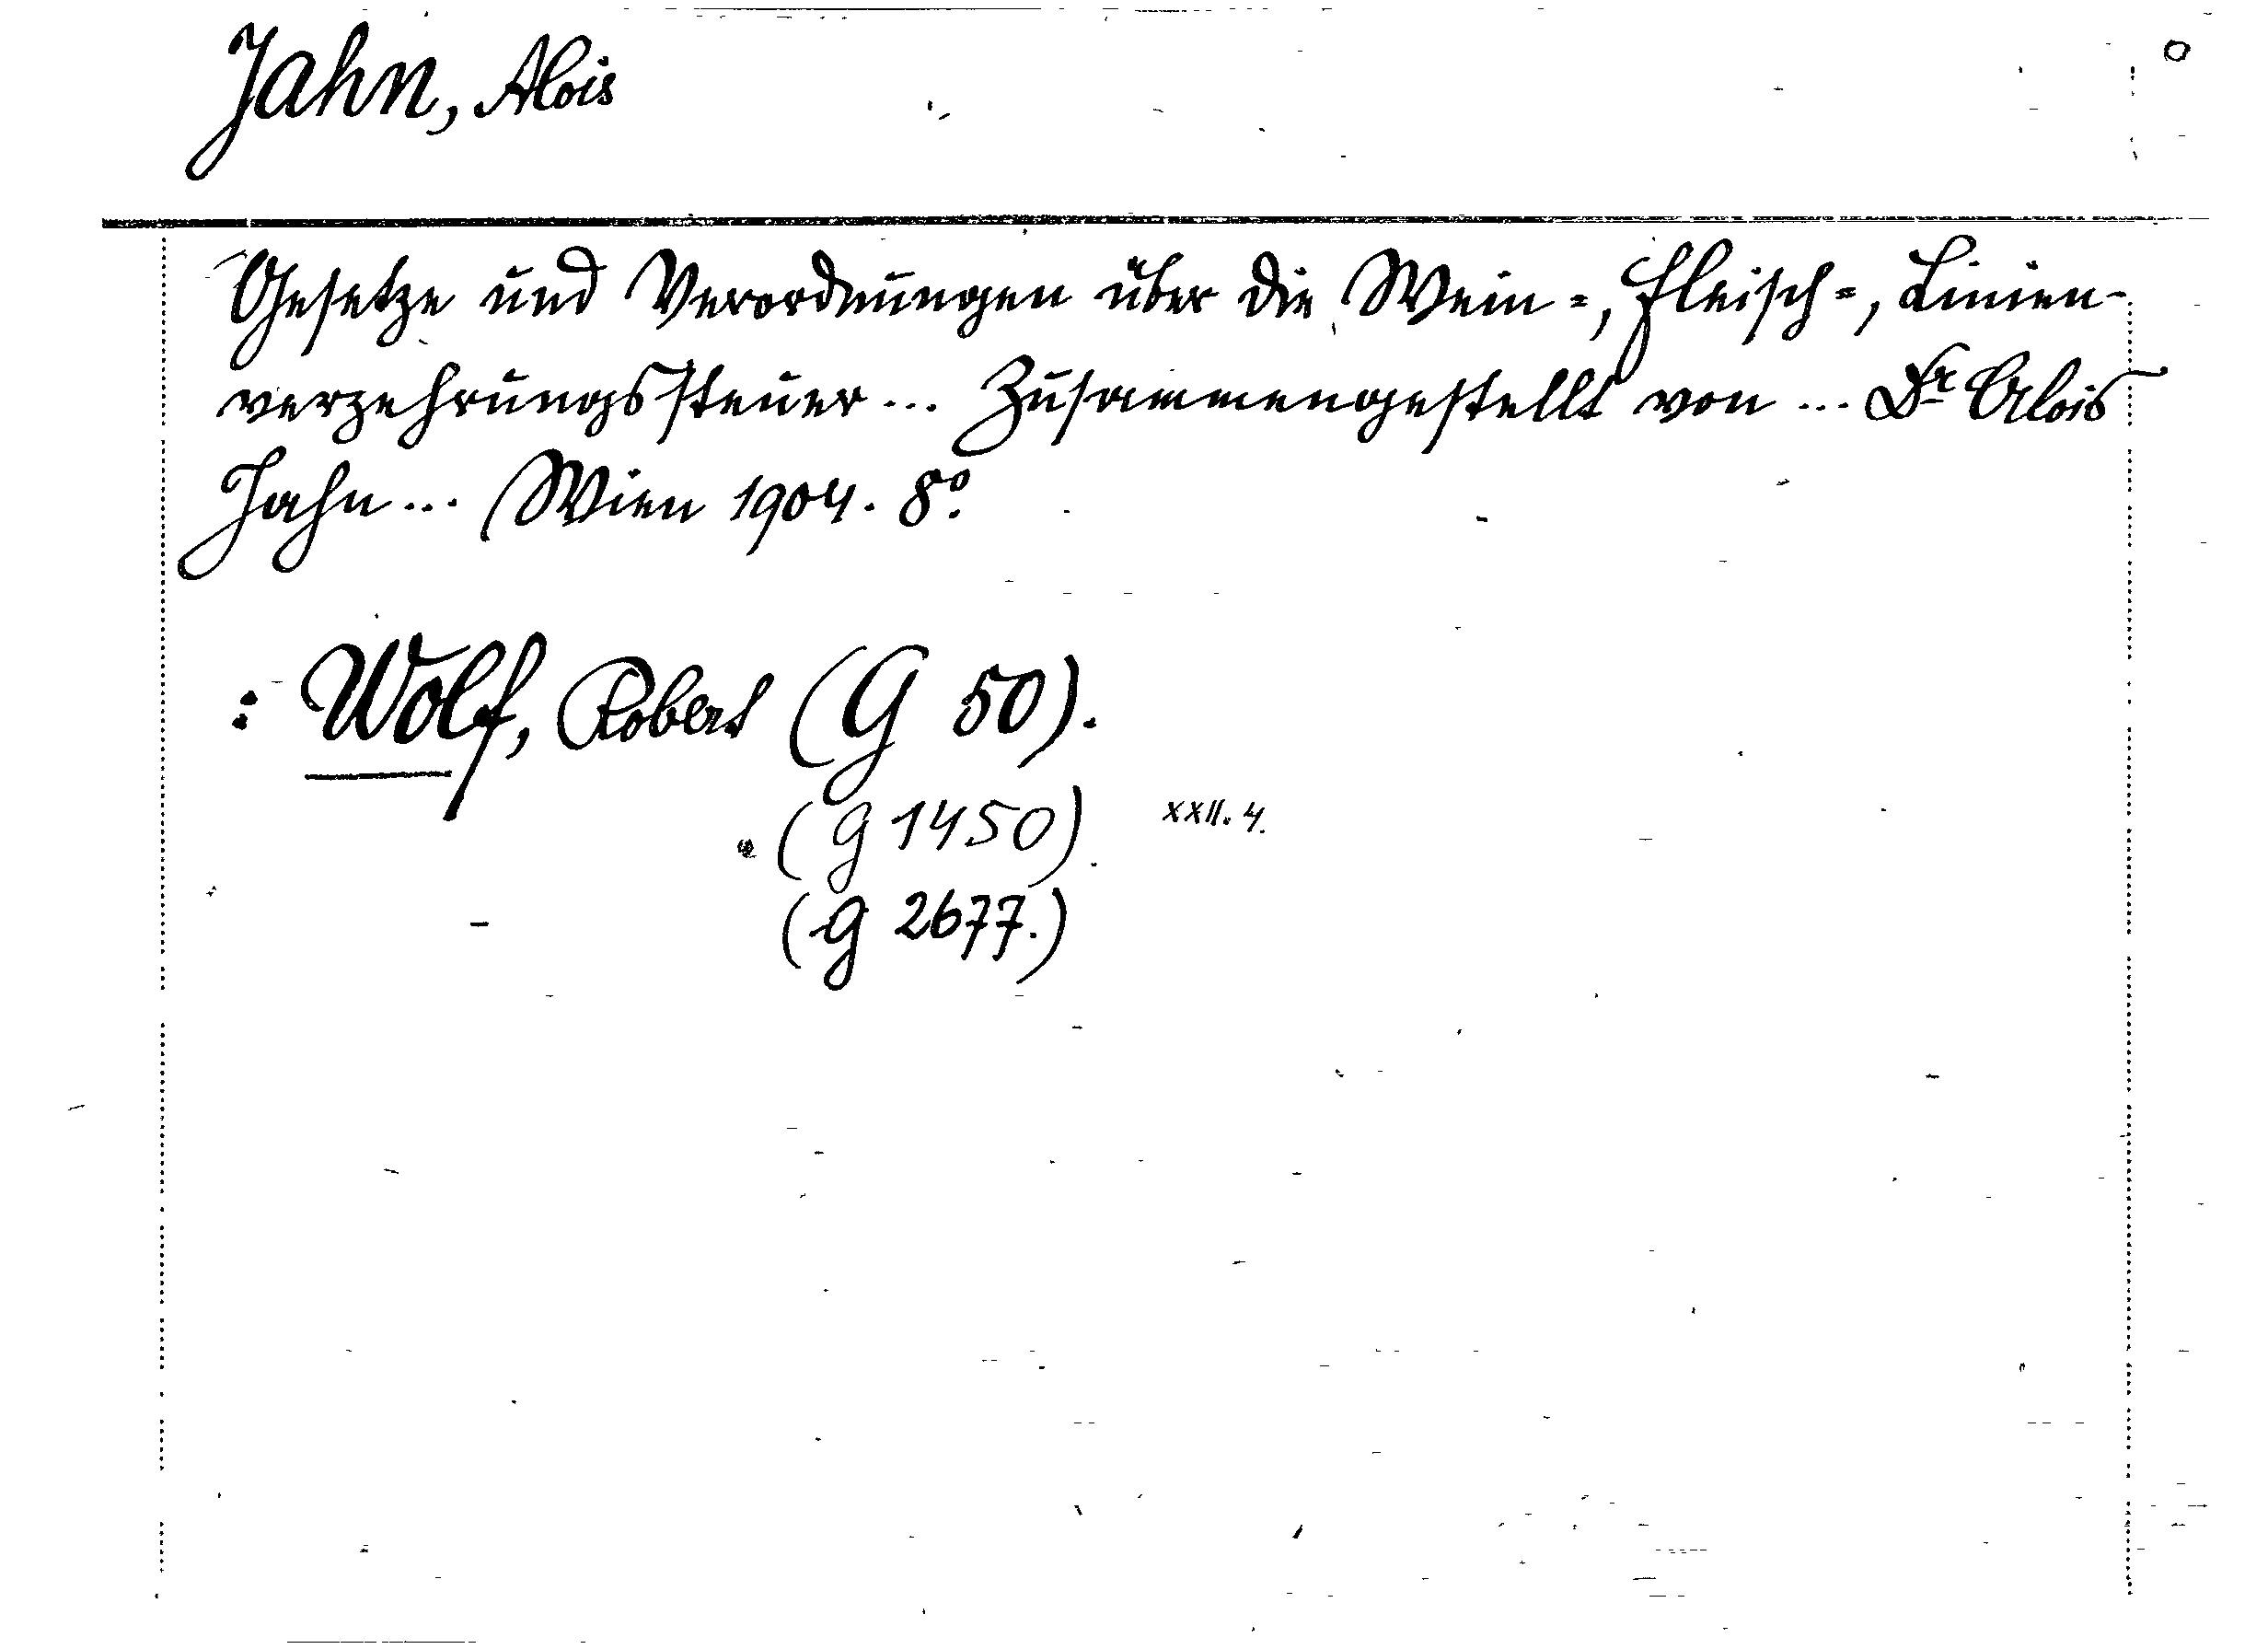 Jahn, Alois
Gesetze und Verordnungen über die Wein=, Fleisch=, Linien-
verzehrungssteuer... Zusammengestellt von ... Dr Alois
Jahn... Wien 1904. 8º.
: Wolf, Robert (G 50).
(G 1450) XXII. 4.
(G 2677.)